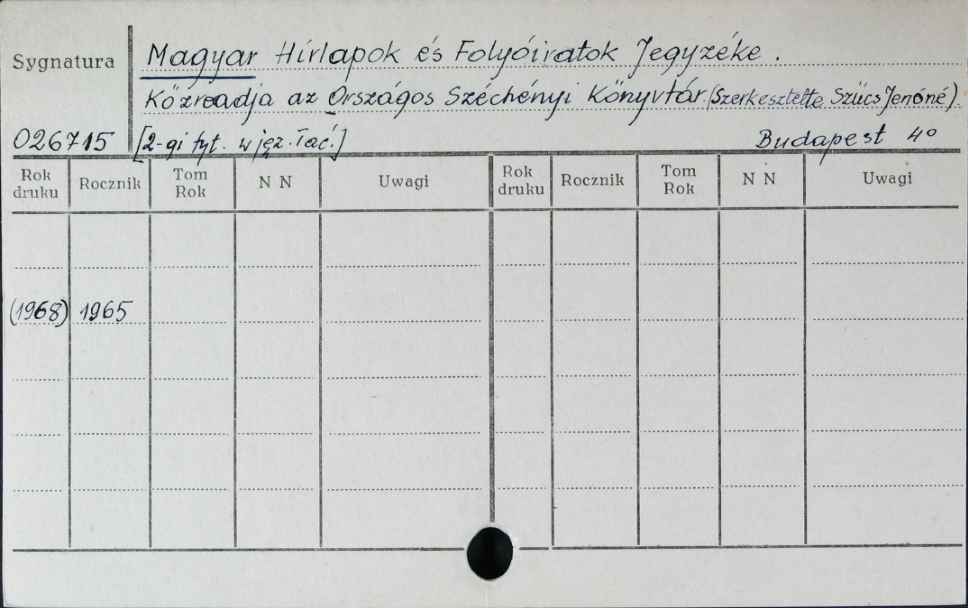 Sygnatura
Magyar Hírlapok és Folyóiratok Jegyzéke.
Közreadja az Országos Széchényi Könyvtár. (Szerkesztette Szücs Jenőné).
026715 [2-gi tyt. w jęz. łac.] Budapest 4°
Rok druku Rocznik Tom Rok N N Uwagi Rok druku Rocznik Tom Rok N N Uwagi
(1968) 1965